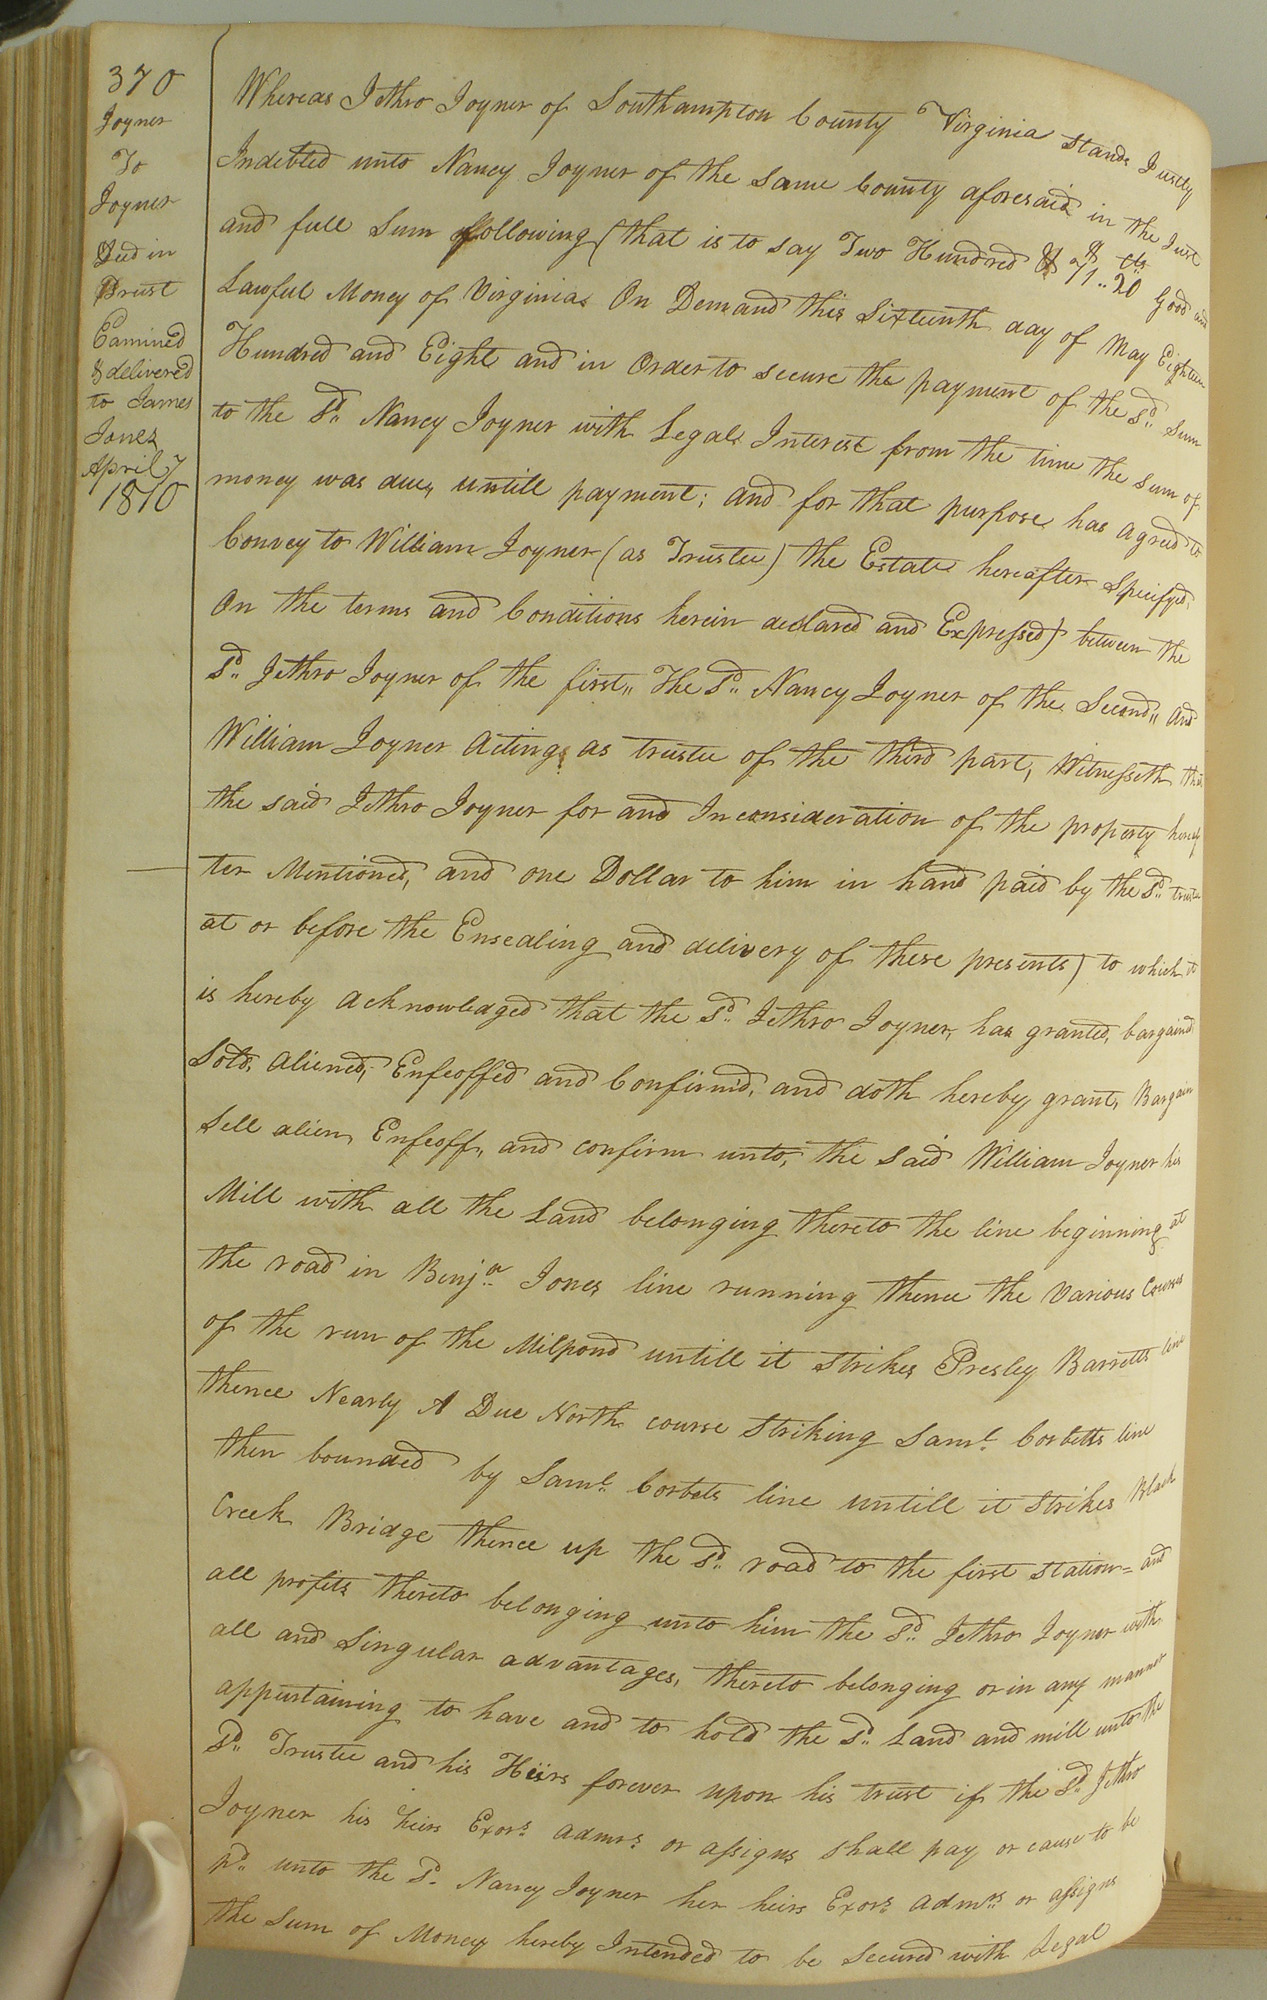 370
Joyner
To
Joyner
Deed in
Trust
Examined
& delivered
to James
Jones
April 7
1810
Whereas Jethro Joyner of Southampton County Virginia stands Justly
Indebted unto Nancy Joyner of the same County aforesaid in the Just
and full Sum following (that is to say Two Hundred & $71..20 cts Good and
Lawful Money of Virginia On Demand this Sixteenth day of May Eighteen
Hundred and Eight and in Order to secure the payment of the sd. Sum
to the sd. Nancy Joyner with Legal Interest from the time the sum of
money was due, untill payment; and for that purpose has agreed to
Convey to William Joyner (as Trustee) the Estate hereafter Specifyed.
On the terms and Conditions herein declared and Expressed) between the
sd. Jethro Joyner of the first,, The sd. Nancy Joyner of the Second,, and
William Joyner Acting as trustee of the third part, Witnesseth that
the said Jethro Joyner for and Inconsideration of the property hereaf
ter Mentioned, and one Dollar to him in hand paid by the sd. trustee
at or before the Ensealing and delivery of these presents) to which it
is hereby acknowledged that the sd. Jethro Joyner, has granted, bargaind
Sold, aliened, Enfeoffed and Confirmd, and doth hereby grant, Bargain
Sell alien, Enfeoff, and confirm unto, the said William Joyner his
Mill with all the Land belonging thereto the line beginning at
the road in Benja. Jones line running thence the Various Courses
of the run of the Milpond untill it Strikes Presley Barretts line
thence Nearly A Due North course Striking Saml. Corbetts line
then bounded by Saml. Corbets line untill it Strikes Black
Creek Bridge thence up the sd. road to the first Station = and
all profits thereto belonging unto him the sd. Jethro Joyner with
all and Singular advantages, thereto belonging or in any manner
appurtaining to have and to hold the sd. Land and mill unto the
sd. Trustee and his Heirs forever upon his trust if the sd. Jethro
Joyner his heirs Exors. admrs. or assigns Shall pay or cause to be
pd. unto the sd. Nancy Joyner her heirs Exors. admrs. or assigns
the Sum of Money hereby Intended to be Secured with Legal